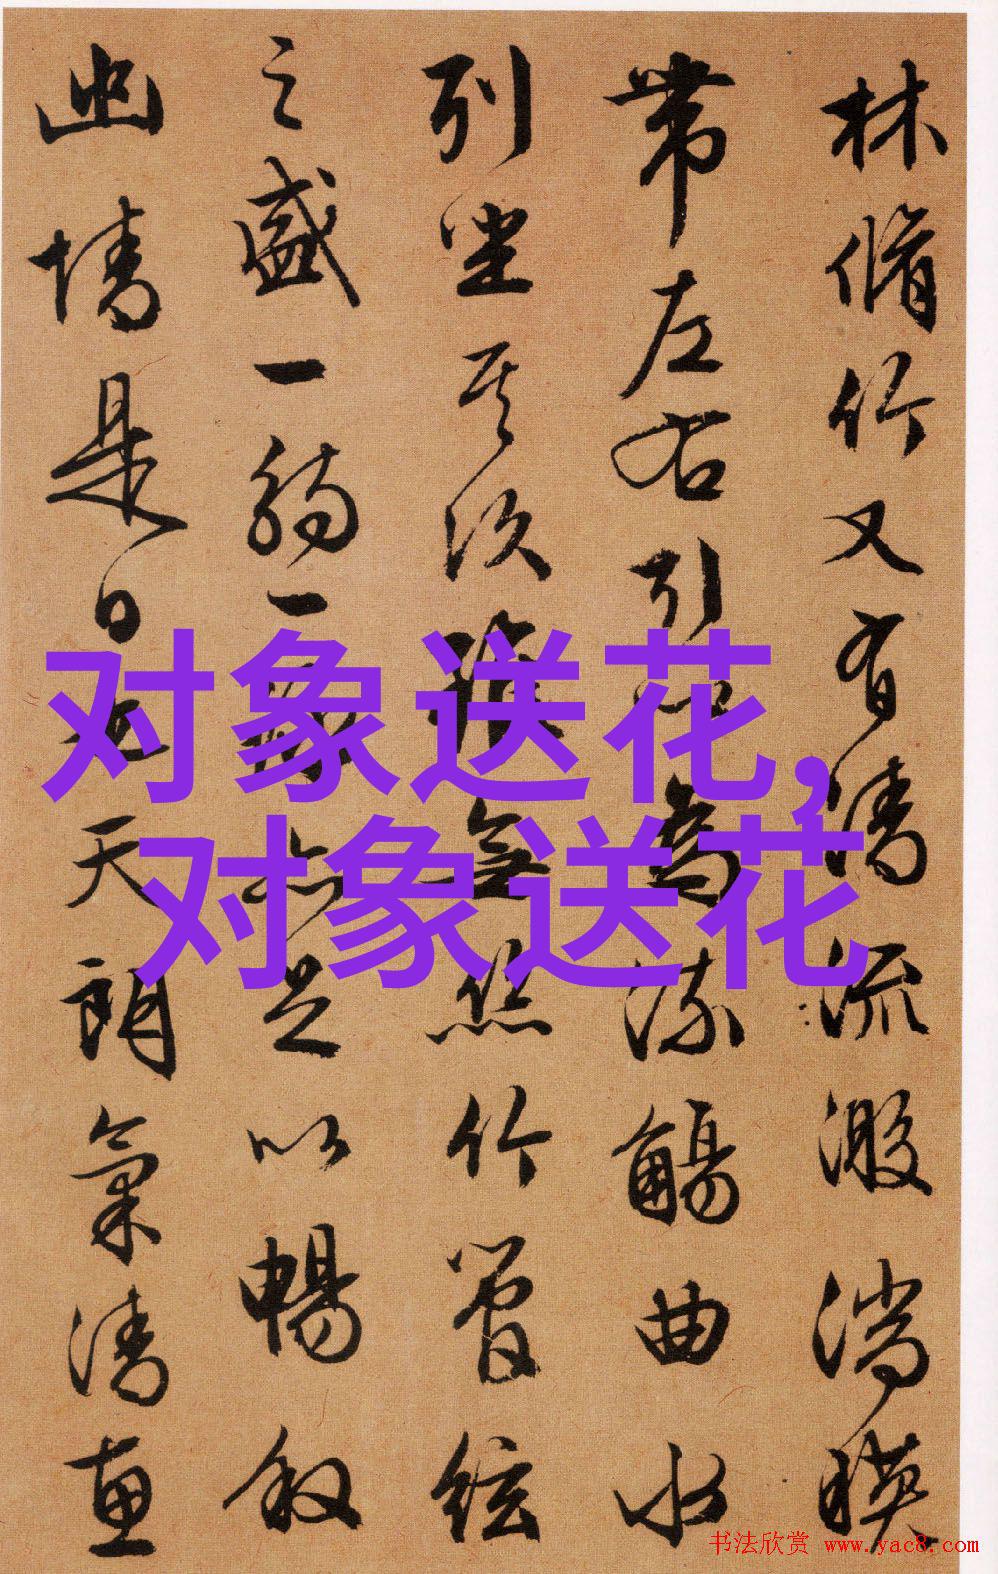 林脩竹又有清流激湍暎
帶左右引以為流觴曲水
列坐其次雖無絲竹管絃
之盛一觴一詠亦足以暢叙
幽情是日也天朗氣清惠
对象送花,
对象送花
书法欣赏 www.yac8.com